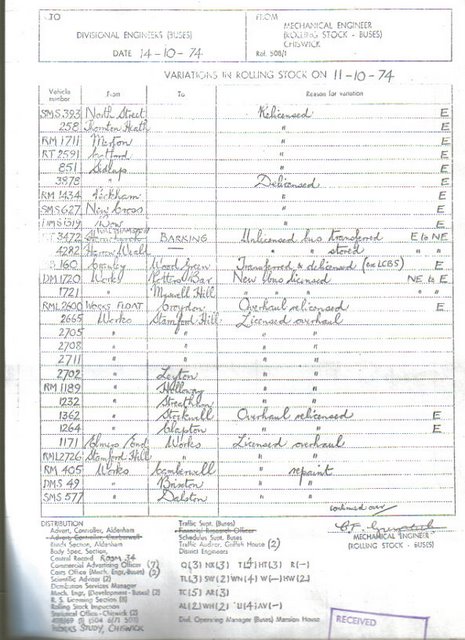 TO
DIVISIONAL ENGINEERS (BUSES)
DATE 14-10-74
FROM
MECHANICAL ENGINEER
(ROLLING STOCK - BUSES)
CHISWICK
Ref. 508/1
VARIATIONS IN ROLLING STOCK ON 11-10-74
Vehicle number From To Reason for variation
SMS 393 North Street Relicensed E
258 Thornton Heath " E
RM 1711 Merton " E
RT 2591 Catford " E
851 Bailups " E
3878 " Delicensed E
RM 1434 " E
SMS 627 New Cross " E
Bow " E
3472 BARKING Unlicensed bus transferred E to NE
4282 Harrow Weald " " stored " "
160 Bromley Wood Green Transferred & delicensed (ex LCBS) E
DM 1720 Works Potters Bar New bus licensed NE to E
1721 " Muswell Hill " " " " "
RML 2600 WORKS FLOAT Croydon Overhaul relicensed E
2665 Works Stamford Hill Licensed overhaul
2705 " " " "
2708 " " " "
2711 " " " "
2702 " Leyton " "
RM 1189 " Holloway " "
1232 " Streatham " "
1362 " Stockwell Overhaul relicensed E
1264 " Clapton " " E
1171 Palmers Works Licensed overhaul
RML 2726 Stamford Hill " " "
RM 405 Works Camberwell " repaint
DMS 49 " Brixton " "
SMS 577 " Dalston " "
continued over
DISTRIBUTION
Advert. Controller, Aldenham
Advert. Controller, Camberwell
Records Section, Aldenham
Body Spec. Section,
Central Record ROOM 34
Commercial Advertising Officer (7)
Costs Office (Mech. Engs) (2)
Scientific Adviser (2)
Distribution Services Manager
Mech. Engr. (Development - Buses) (2)
R. S. Licensing Section (8)
Rolling Stock Inspection
Statistical Office - Chiswick (2)
WORKS STUDY, CHISWICK
Traffic Supt. (Buses)
Financial Research Officer
Schedules Supt. Buses
Traffic Auditor, Griffith House (2)
District Engineers
Q(3) NX(3) HT(3) R(-)
TL(3) SW(2) WN(4) W(-) HW(2)
TC(5) AR(3)
AL(2) WH(2) U(4) AV(-)
Divl. Operating Manager (Buses) Mansion House
MECHANICAL ENGINEER
(ROLLING STOCK - BUSES)
RECEIVED